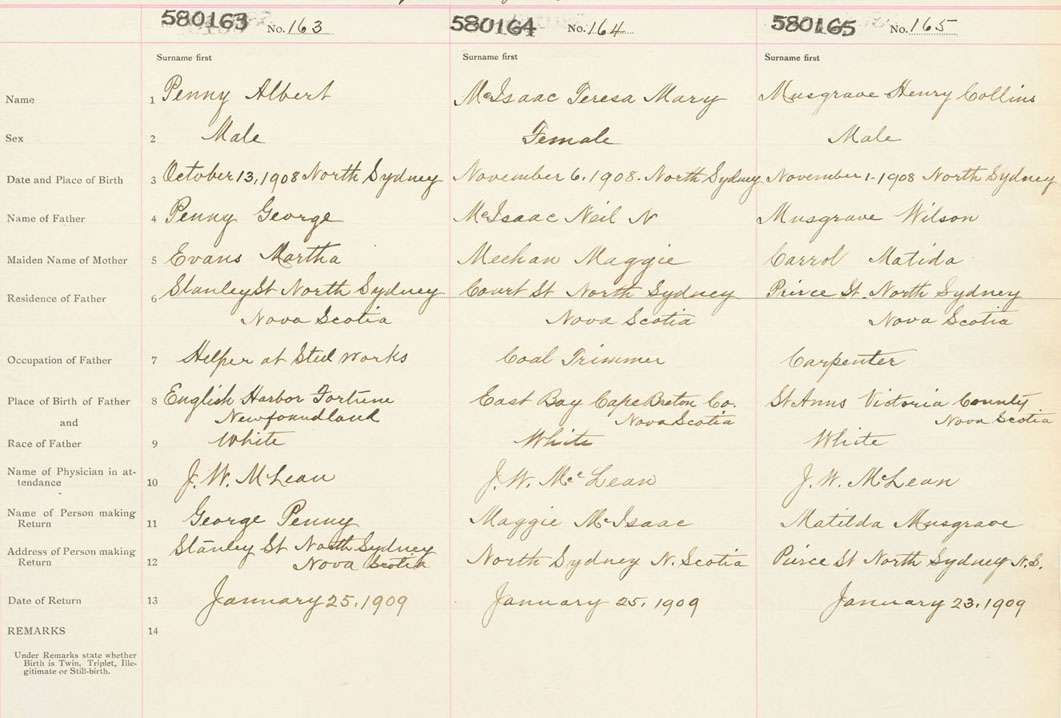 580163 No. 163 580164 No. 164 580165 No. 165
Surname first Surname first Surname first
Name 1 Penny Albert McIsaac Teresa Mary Musgrave Henry Collins
Sex 2 Male Female Male
Date and Place of Birth 3 October 13, 1908 North Sydney November 6, 1908. North Sydney November 1-1908 North Sydney
Name of Father 4 Penny George McIsaac Neil N Musgrave Wilson
Maiden Name of Mother 5 Evans Martha Meehan Maggie Carrol Matida
Residence of Father 6 Stanley St North Sydney Court St North Sydney Peirce St. North Sydney
Nova Scotia Nova Scotia Nova Scotia
Occupation of Father 7 Helper at Steel Works Coal Trimmer Carpenter
Place of Birth of Father 8 English Harbor Fortune East Bay Cape Breton Co. St Anns Victoria County
and Newfoundland Nova Scotia Nova Scotia
Race of Father 9 White White White
Name of Physician in at-
tendance 10 J. W. McLean J. W. McLean J. W. McLean
Name of Person making
Return 11 George Penny Maggie McIsaac Matilda Musgrave
Address of Person making Stanley St North Sydney
Return 12 Nova Scotia North Sydney N. Scotia Peirce St North Sydney N.S.
Date of Return 13 January 25, 1909 January 25, 1909 January 23, 1909
REMARKS 14
Under Remarks state whether
Birth is Twin, Triplet, Ille-
gitimate or Still-birth.